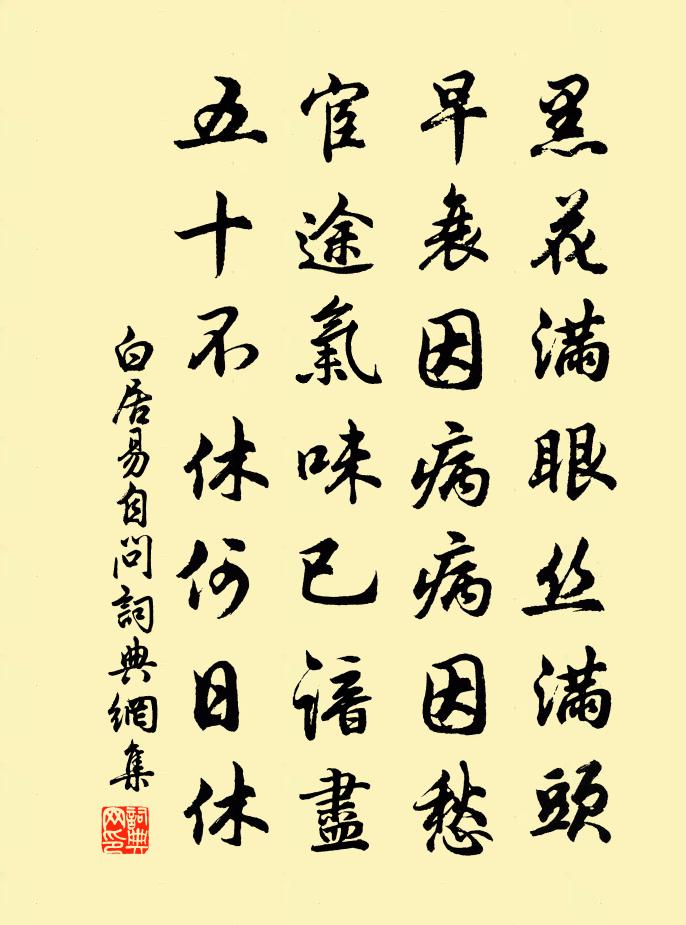 黑花满眼丝满頭
早衰因病病因愁
宦途氣味已谙盡
五十不休何日休
白居易自问詞典網集
詞典网印